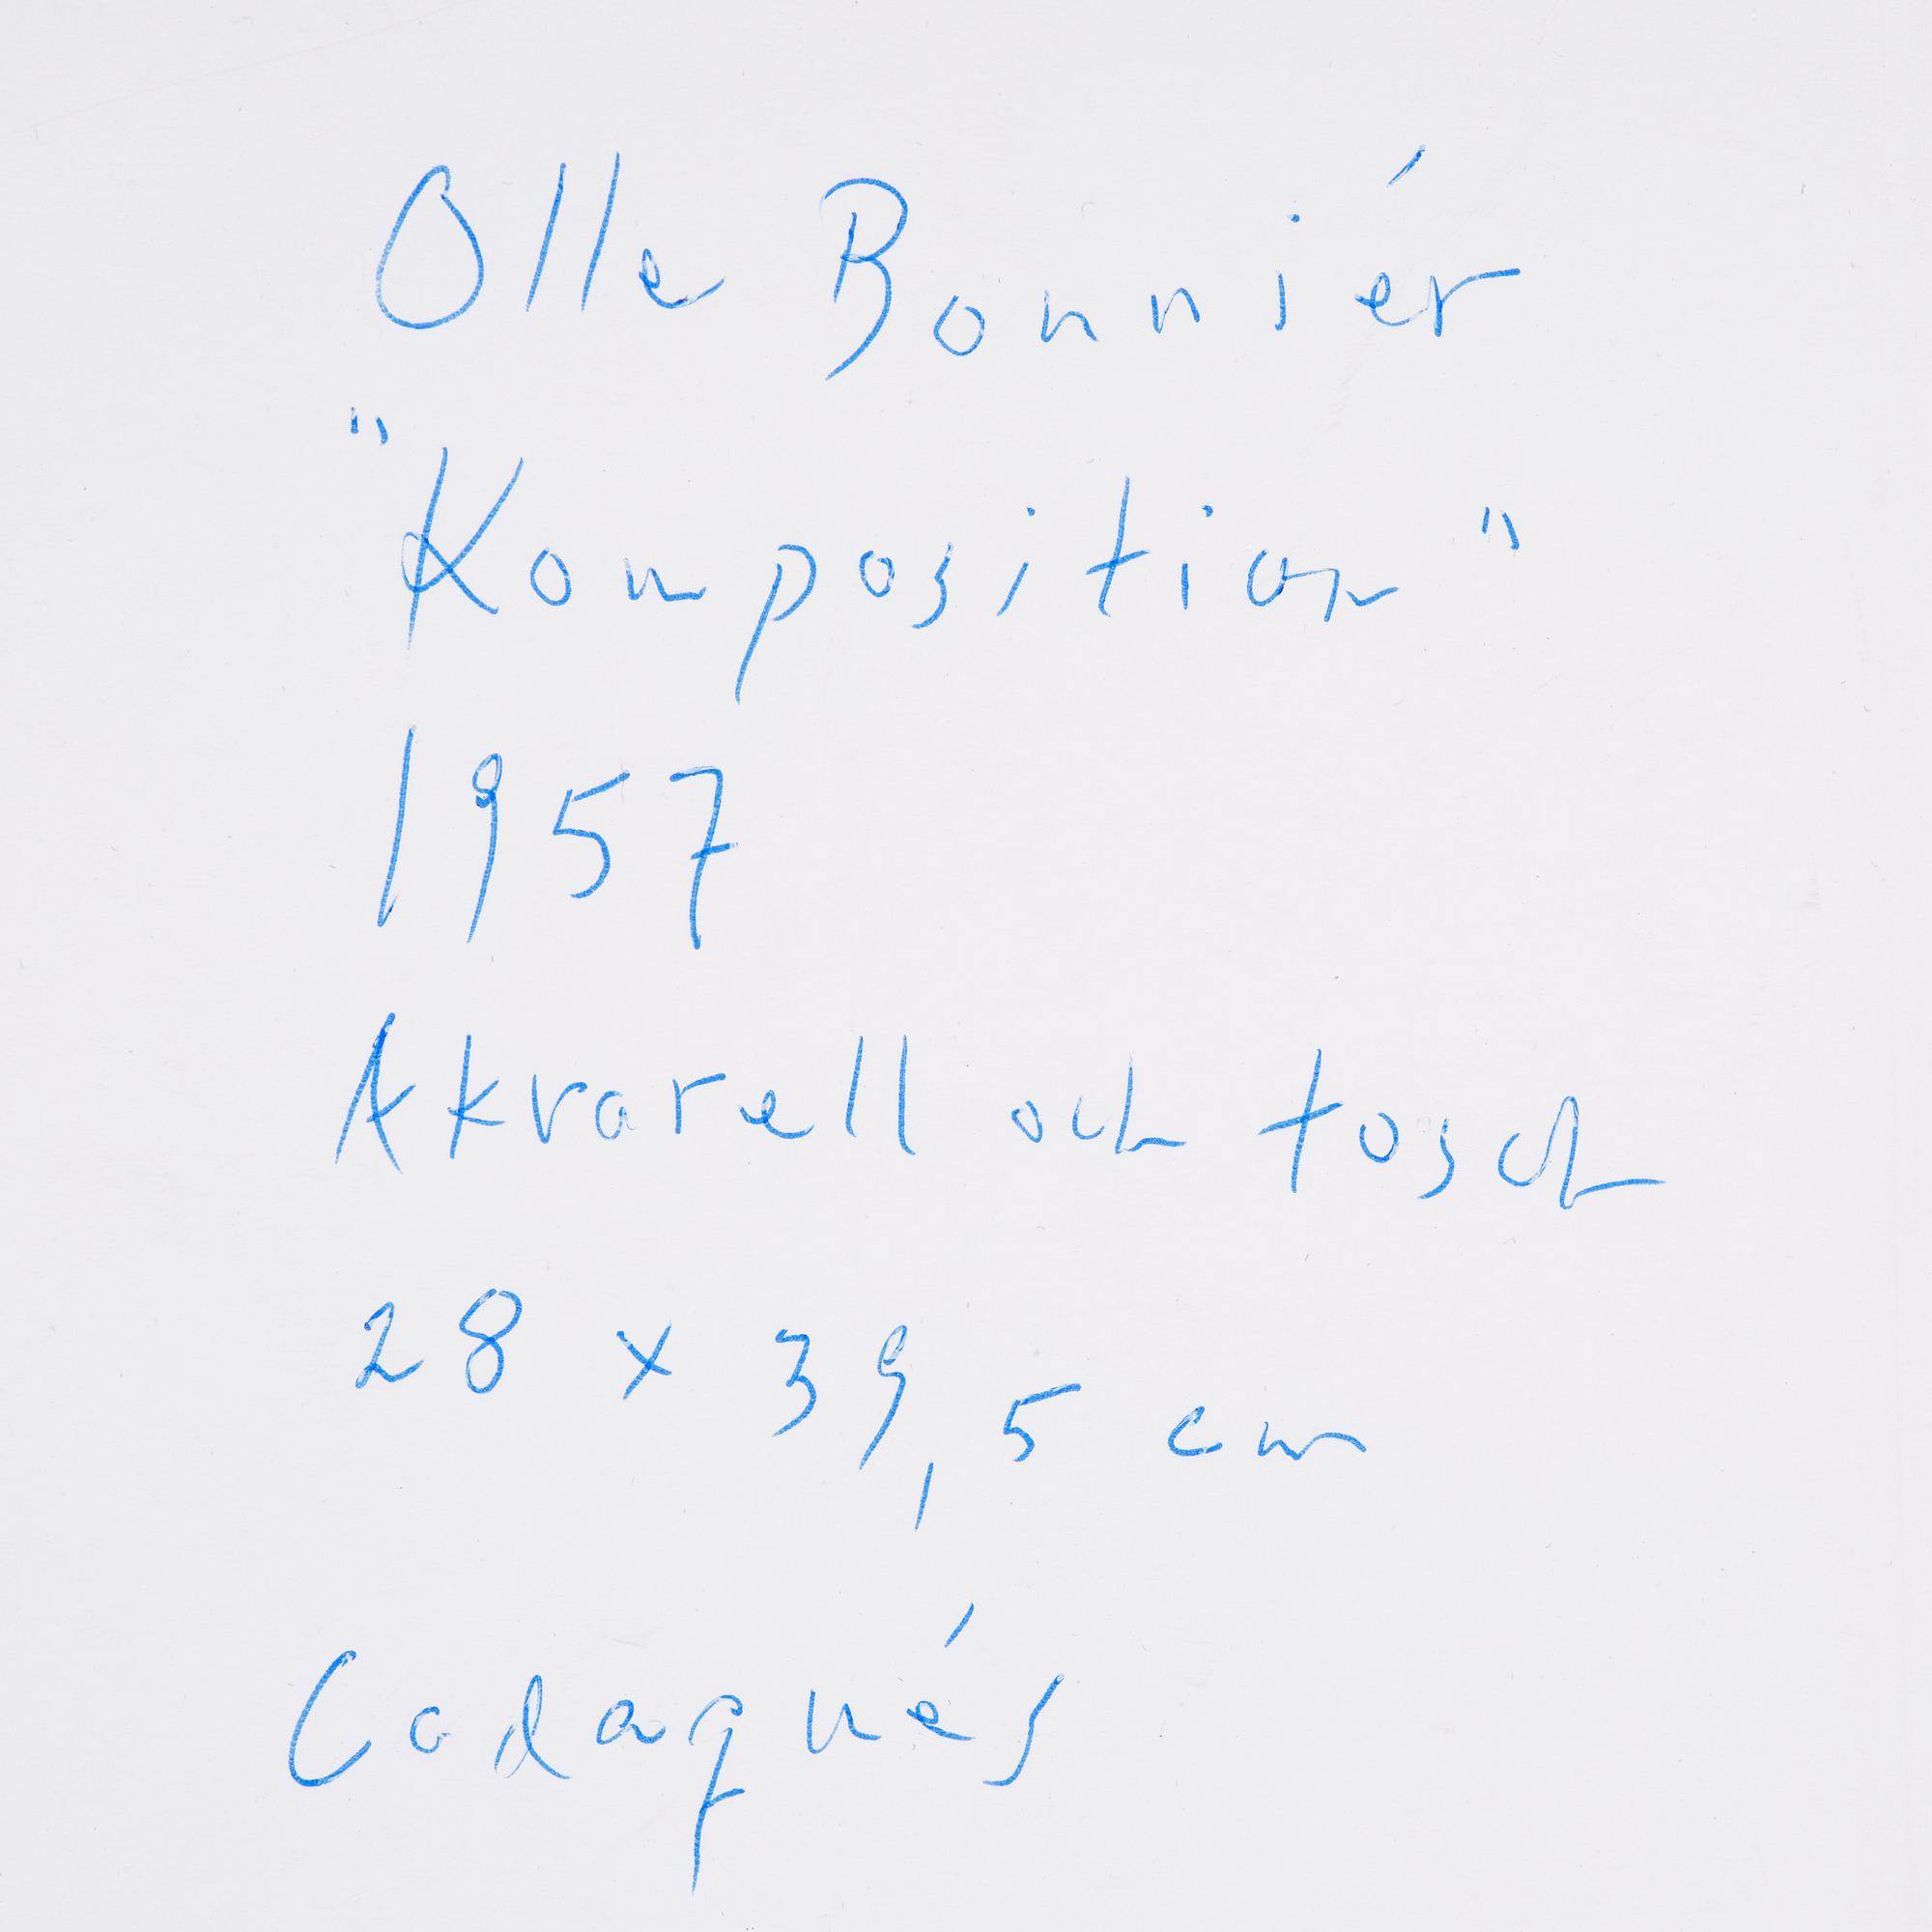 Olle Bonniér
"Komposition"
1957
Akvarell och tosch
28 x 39,5 cm
Cadaqués